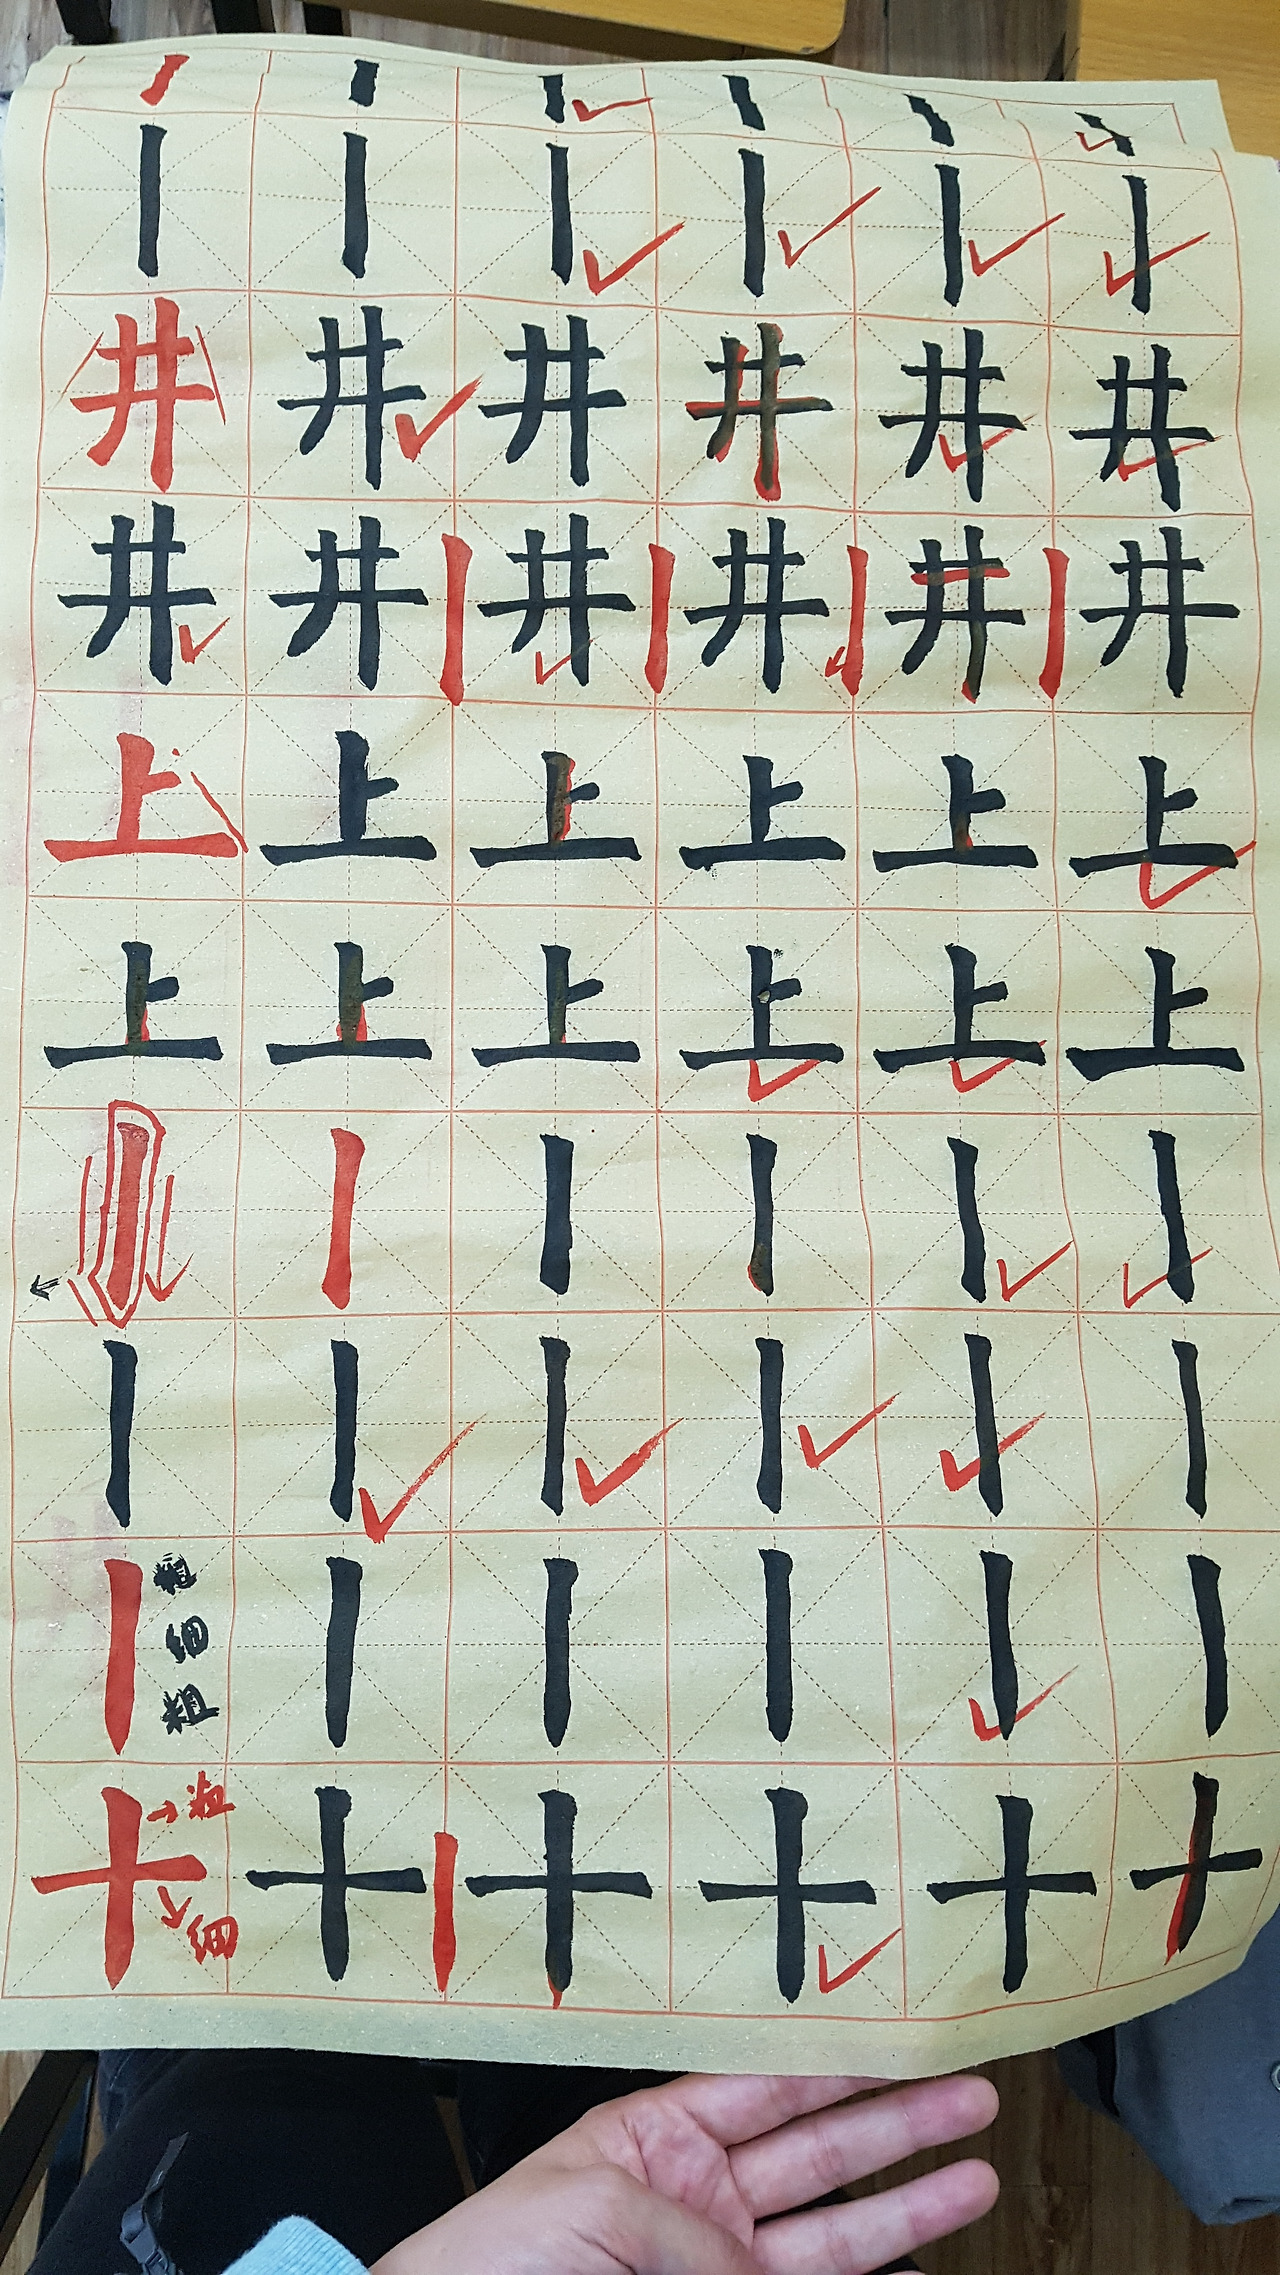 丨 丨 丨 丨 丨 丨
井 井 井 井 井 井
井 井 井 井 井 井
上 上 上 上 上 上
上 上 上 上 上 上
丨 丨 丨 丨 丨 丨
丨 丨 丨 丨 丨 丨
丨 粗 细 粗 丨 丨 丨 丨 丨
十 粗 细 十 十 十 十 十